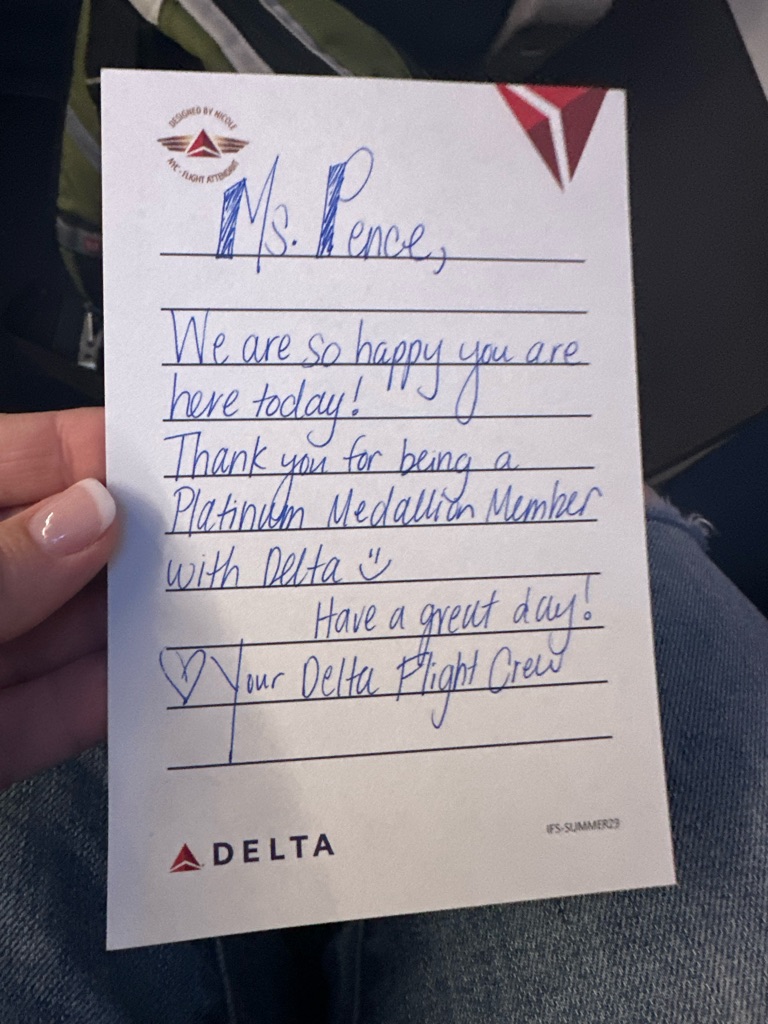 DESIGNED BY NICOLE
NYC - FLIGHT ATTENDANT
Ms. Pence,
We are so happy you are
here today!
Thank you for being a
Platinum Medallion Member
with Delta
Have a great day!
Your Delta Flight Crew
IFS-SUMMER23
DELTA